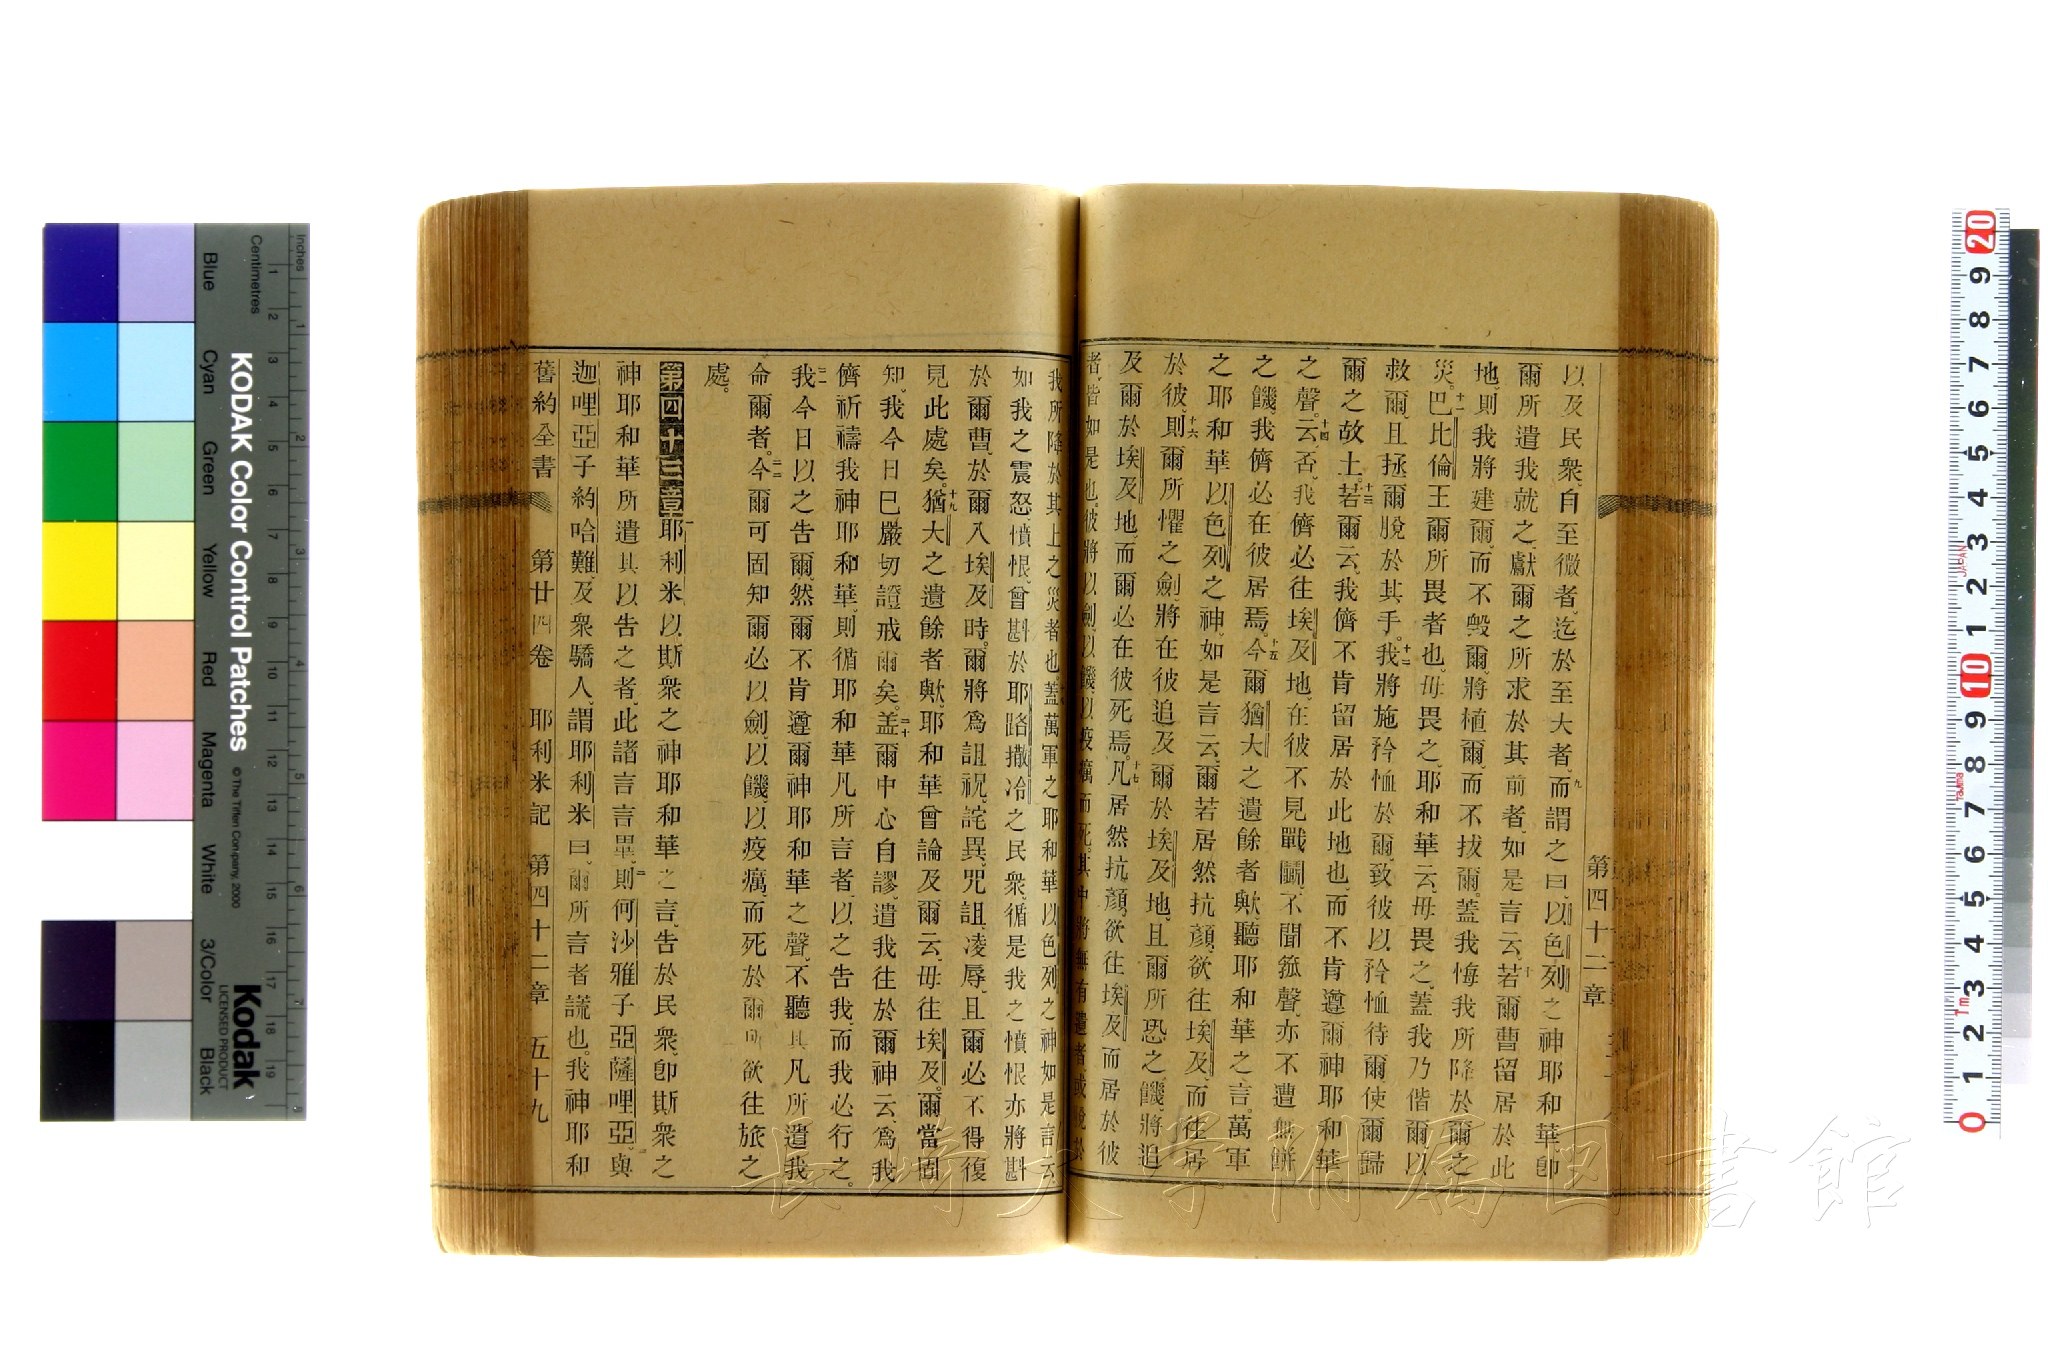 第四十二章
以及民衆、自至微者、迄於至大者、九而謂之曰、以色列之神耶和華卽
爾所遣我就之、獻爾之所求於其前者、如是言云、十若爾曹留居於此
地、則我將建爾、而不毀爾、將植爾、而不拔爾、蓋我悔我所降於爾之
災。十一巴比倫王爾所畏者也、毋畏之、耶和華云、毋畏之、蓋我乃偕爾、以
救爾、且拯爾脫於其手。十二我將施矜恤於爾、致彼以矜恤待爾、使爾歸
爾之故土。十三若爾云、我儕不肯留居於此地也、而不肯遵爾神耶和華
之聲。十四云、否、我儕必往埃及地、在彼不見戰鬬、不聞箛聲、亦不遭無餅
之饑、我儕必在彼居焉。十五今爾猶大之遺餘者歟、聽耶和華之言。萬軍
之耶和華以色列之神、如是言云、爾若居然抗顏、欲往埃及、而往居
於彼、十六則爾所懼之劍、將在彼追及爾於埃及地、且爾所恐之饑、將追
及爾於埃及地、而爾必在彼死焉。十七凡居然抗顏、欲往埃及而居於彼
者、皆如是也、彼將以劍、以饑、以疫癘而死、其中將無有遺者、或脫於
我所降於其上之災者也、蓋萬軍之耶和華以色列之神如是言云、
如我之震怒、憤恨、曾斟於耶路撒冷之民衆、循是我之憤恨亦將斟
於爾曹、於爾入埃及時。爾將爲詛祝、詫異、咒詛、凌辱、且爾必不得復
見此處矣。十九猶大之遺餘者歟、耶和華曾論及爾云、毋往埃及。爾當固
知、我今日已嚴切證戒爾矣。二十蓋爾中心自謬、遣我往於爾神云、爲我
儕祈禱我神耶和華、則循耶和華凡所言者、以之告我、而我必行之。
二一我今日以之告爾、然爾不肯遵爾神耶和華之聲、不聽其凡所遣我
命爾者。二二今爾可固知爾必以劍、以饑、以疫癘、而死於爾所欲往旅之
處。
第四十三章一耶利米以斯衆之神耶和華之言、告於民衆、卽斯衆之
神耶和華所遣其以告之者、此諸言言畢、二則何沙雅子亞薩哩亞、與
迦哩亞子約哈難、及衆驕人、謂耶利米曰、爾所言者謊也。我神耶和
舊約全書 第廿四卷 耶利米記 第四十二章 五十九
KODAK Color Control Patches
© The Tiffen Company, 2000
Kodak
LICENSED PRODUCT
Inches
Centimetres
Blue
Cyan
Green
Yellow
Red
Magenta
White
3/Color
Black
長崎大学附属図書館